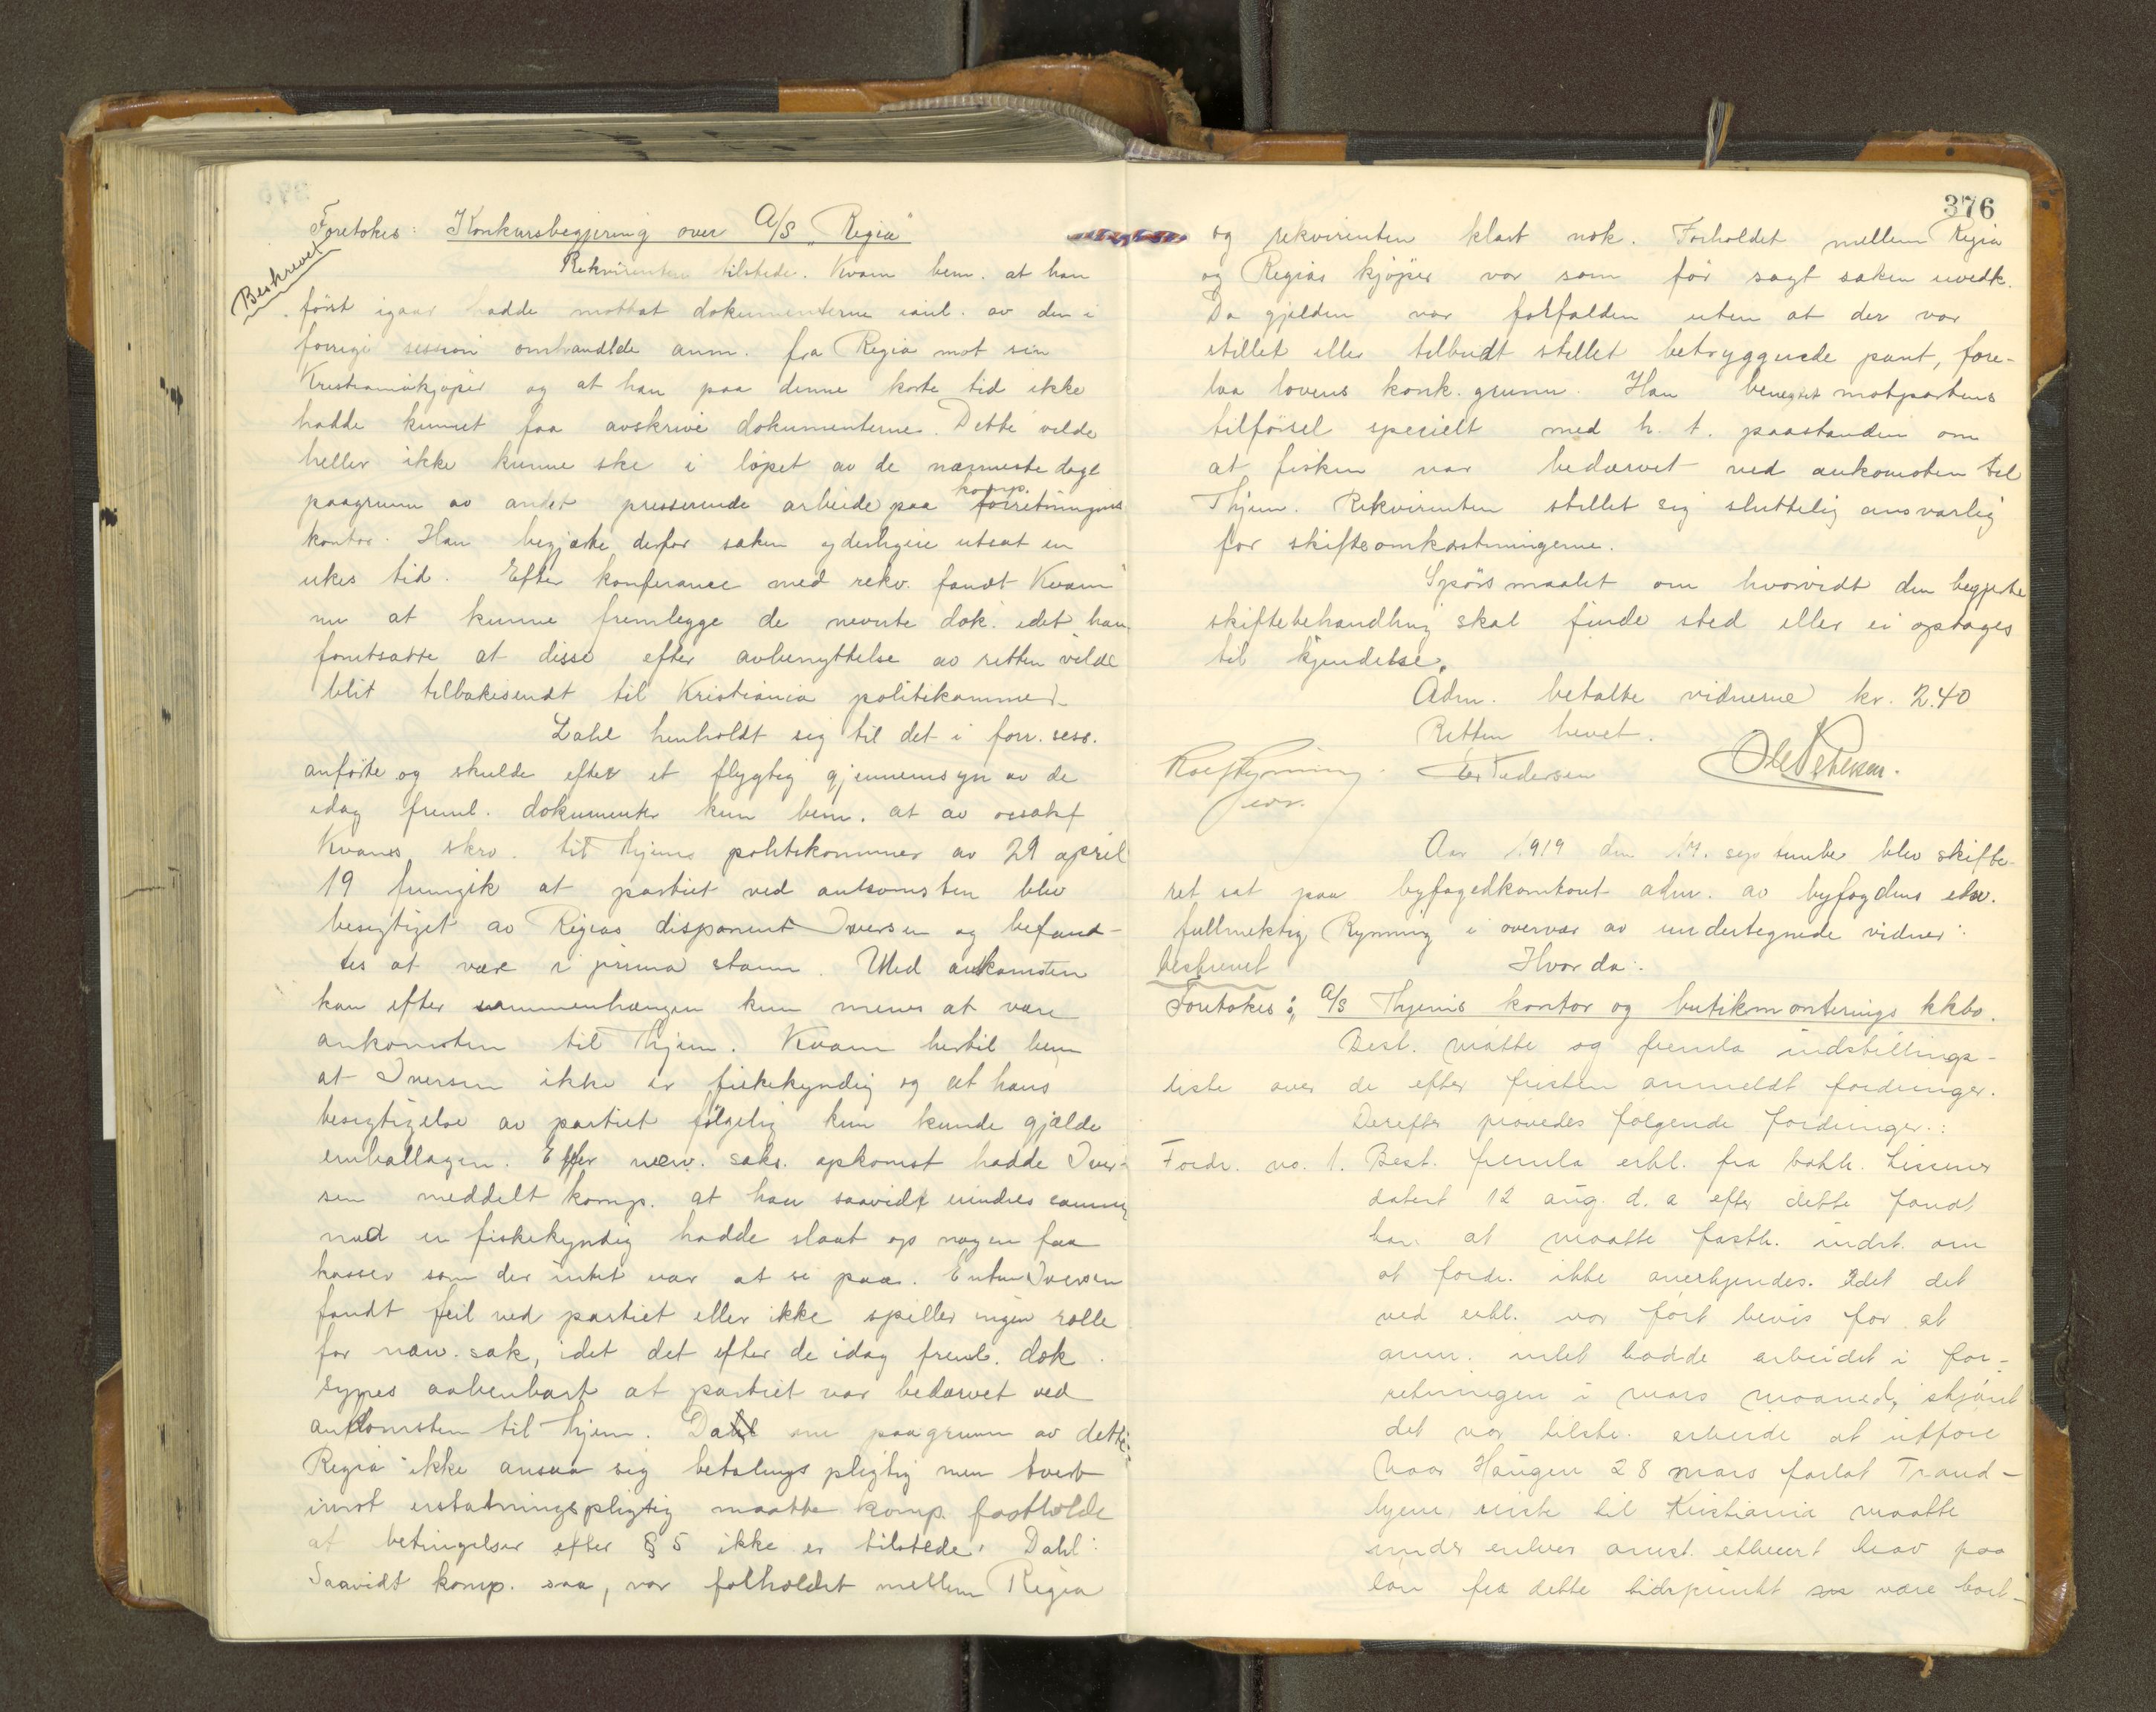 Foretokes: Konkursbegjering over A/S "Regia"
Beskrevet
Rekvirenten tilstede. Kvam bem. at han
først igaar hadde mottat dokumenterne i anl. av den i
forrige session omhandlede anm. fra Regia mot sin
Kristianiakjøper og at han paa denne korte tid ikke
hadde kunnet faa avskrive dokumenterne. Dette vilde
heller ikke kunne ske i løpet av de nærmeste dage
paagrunn av andet presserende arbeide paa komp. forretningens
kontor. Han begjærte derfor saken yderligere utsat en
ukes tid. Efter konferance med rekv. fandt Kvam
nu at kunne fremlegge de nevnte dok. idet han
forutsatte at disse efter avbenyttelse av retten vilde
blit tilbakesendt til Kristiania politikammer.
Dahl henholdt sig til det i forr. sess.
anførte og skulde efter et flygtig gjennemsyn av de
idag freml. dokumenter kun bem. at av
Kvams skrv. til Thjems politikammer av 29 april
19 fremgik at partiet ved ankomsten blev
besigtiget av Regias disponent Iversen og befand-
tes at være i prima stann. Med ankomsten
kan efter sammenhængen kun menes at være
ankomsten til Thjem. Kvam hertil bem
at Iversen ikke er fiskekyndig og at hans
besigtigelse av partiet følgelig kun kunde gjælde
emballagen. Efter nærv. saks. opkomst hadde Iver-
sen meddelt komp. at han saavidt mindes sammen
med en fiskekyndig hadde slaat op nogen faa
kasser som der intet var at se paa. Enten Iversen
fandt feil ved partiet eller ikke spiller ingen rolle
for nærv. sak, idet det efter de idag freml. dok.
synes aabenbart at partiet var bedærvet ved
ankomsten til Thjem. Da paagrunn av dette
Regia ikke ansaa sig betalingspligtig men tvert
imot erstatningspligtig maatte komp. fastholde
at betingelser efter § 5 ikke er tilstede. Dahl:
Saavidt komp. saa, var forholdet mellem Regia
376
og rekvirenten klart nok. Forholdet mellem Regia
og Regias kjøper var som før sagt saken uvedk.
Da gjælden var forfalden uten at der var
stillet eller tilbudt stillet betryggende pant, fore-
laa lovens konk. grunn. Han benegtet motpartens
tilførsel specielt med h. t. paastanden om
at fisken var bedærvet ved ankomsten til
Thjem. Rekvirenten stillet sig sluttelig ansvarlig
for skifteomkostningerne.
Spørsmaalet om hvorvidt den begjærte
skiftebehandling skal finde sted eller ei optages
til kjendelse.
Adm. betalte vidnerne kr. 2.40
Retten hevet.
Rolf Rynning
Pedersen
Ole Petersen.
Aar 1919 den 19. september blev skifte-
ret sat paa byfogedkontoret adm. av byfogdens edsv.
fullmektig Rynning i overvær av undertegnede vidner:
beskrevet
Hvorda:
Foretokes: A/S Thjems kontor og butikmonterings kkbo.
Best. møtte og fremla indstillings-
liste over de efter fristen anmeldt fordringer.
Derefter prøvedes følgende fordringer:
Fordr. no. 1. Best. fremla erkl. fra bokh.
datert 12 aug. d. a efter dette fandt
han at maatte fasth. indst. om
at fordr. ikke anerkjendes. Idet det
ved erkl. var ført bevis for at
anm. intet hadde arbeidet i for-
retningen i mars maaned, skjønt
det var tilstr. arbeide at utføre
Naar Haugen 28 mars forlot Trond-
hjem, reiste til Kristiania maatte
under enhver omst. ethvert krav paa
løn fra dette tidspunkt være bort-